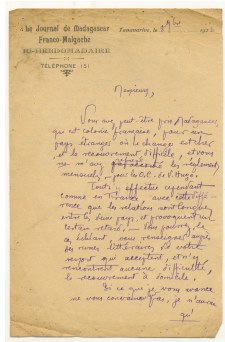 Le Journal de Madagascar
Franco-Malgache
BI-HEBDOMADAIRE
TÉLÉPHONE 151
Tananarive, le 8 9bre 192
Messieurs,
Vous avez peut être pris Madagascar,
qui est colonie française, pour un
pays étranger où le change est cher
et le recouvrement difficile, et vous
ne m'avez les règlements
mensuels, pour les O.C. de V. Hugo.
Tout s'y effectue cependant
comme en France, avec cette diffé-
rence que les relations sont longues
entre les deux pays, et provoquent un
certain retard. Vous pouvez, le
cas échéant, vous renseigner auprès
des maisons littéraires de votre
ressort qui acceptent, et n'y
rencontrent aucune difficulté,
le recouvrement à domicile.
Si ce que je vous avance
ne vous convainc pas, je n'aurai
qu'